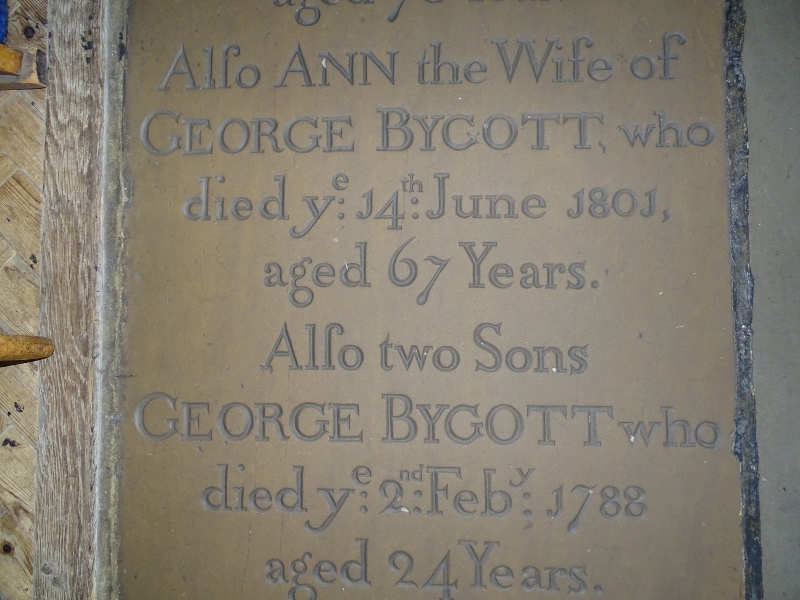 aged 78 Years.
Alſo ANN the Wife of
GEORGE BYGOTT, who
died yᵉ: 14ᵗʰ: June 1801,
aged 67 Years.
Alſo two Sons
GEORGE BYGOTT who
died yᵉ: 2ⁿᵈ: Febʸ: 1788
aged 24 Years.